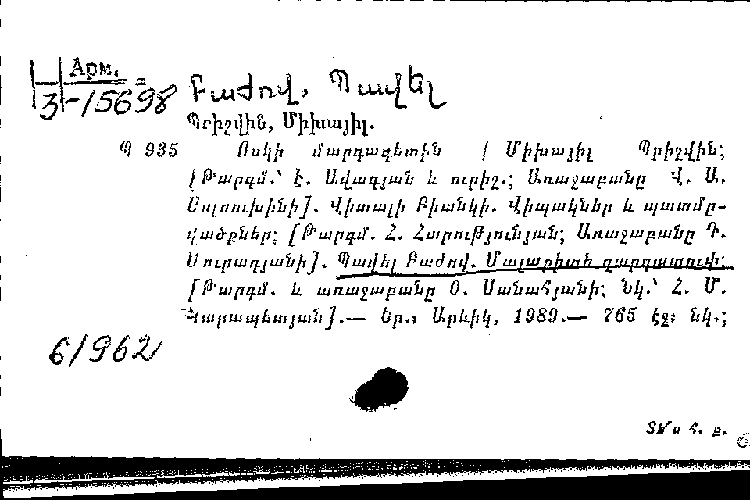 Арм.
3-15698
Բաժով, Պավել
Պրիշվին, Միխայիլ.
Պ 935 Ոսկի մարդագետին / Միխայիլ Պրիշվին;
[Թարգմ.՝ է. Ավագյան և ուրիշ.; Առաջաբանը Վ. Ա.
]. Վիտալի Բիանկի. Վիպակներ և պատմը-
վածքներ; [Թարգմ. Հ. Հարությունյան; Առաջաբանը Գ.
Մուրադյանի]. Պավել Բաժով. Մալաքիտե զարդատուփ:
[Թարգմ. և առաջաբանը Օ. Սանահյանի; նկ.՝ Հ. Մ.
Կարապետյան].— Եր., Արևիկ, 1989.— 765 էջ: նկ.;
61962